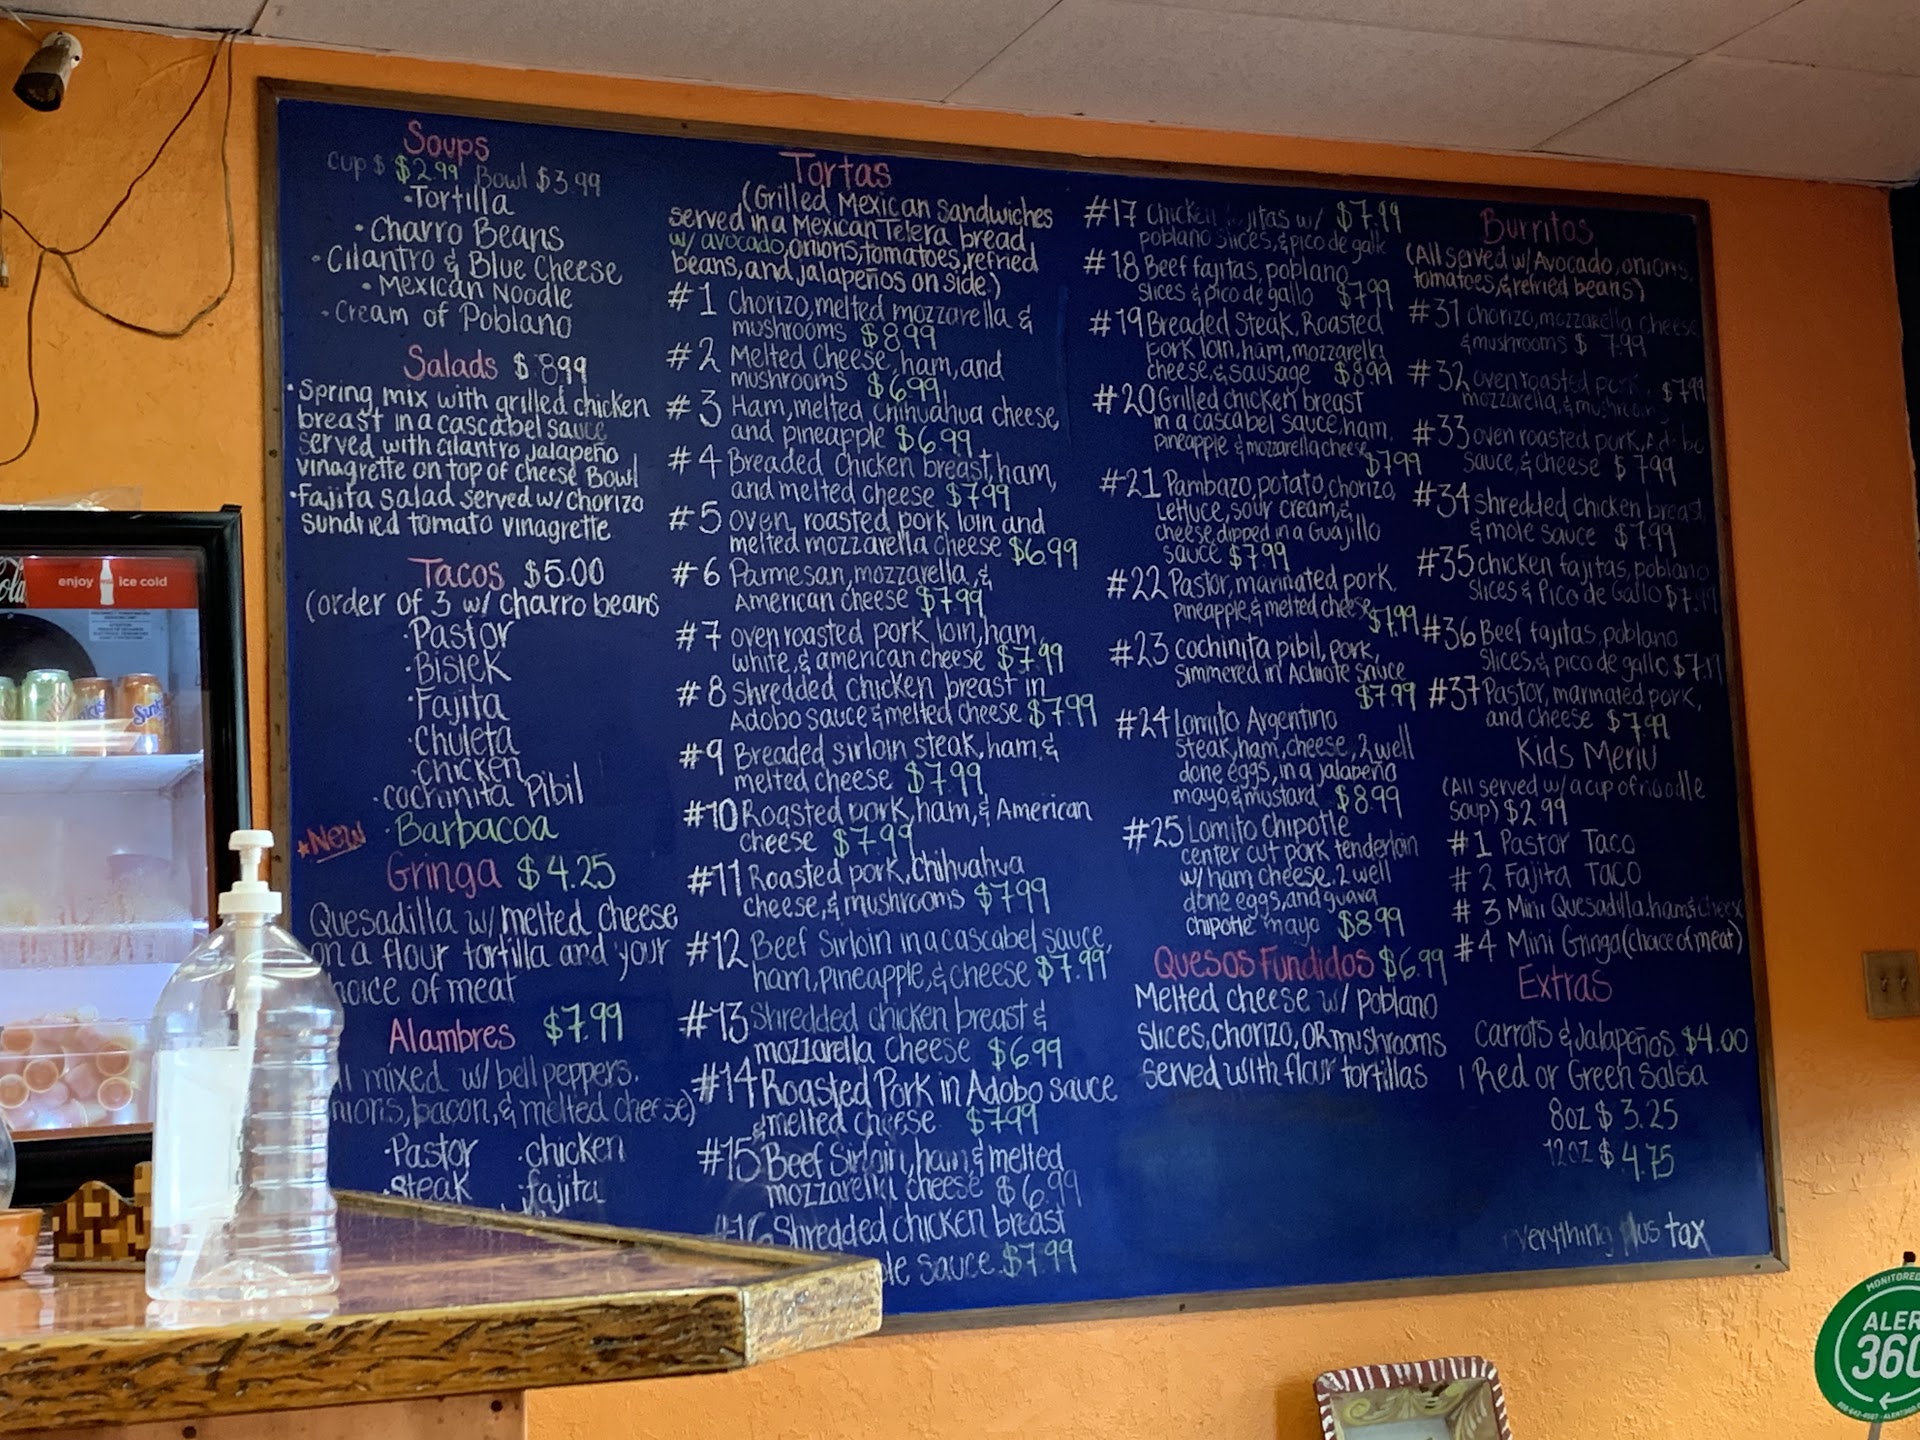 Soups
Cup $ $2.99 Bowl $3.99
•Tortilla
•Charro Beans
•Cilantro & Blue Cheese
•Mexican Noodle
•Cream of Poblano
Salads $ 8.99
•Spring mix with grilled chicken
breast in a cascabel sauce
served with cilantro jalapeño
vinagrette on top of cheese Bowl
•Fajita salad served w/ Chorizo
sundried tomato vinagrette
Tacos $5.00
(order of 3 w/ charro beans
•Pastor
•Bistek
•Fajita
•Chuleta
•Chicken
•Cochinita Pibil
*New •Barbacoa
Gringa $4.25
Quesadilla w/ melted cheese
on a flour tortilla and your
choice of meat
Alambres $7.99
mixed w/ bell peppers,
onions, bacon, & melted cheese)
•Pastor •chicken
•steak •fajita
Tortas
(Grilled Mexican Sandwiches
served in a Mexican Telera bread
w/ avocado, onions, tomatoes, refried
beans, and jalapeños on side)
#1 Chorizo, melted mozzarella &
mushrooms $8.99
#2 Melted Cheese, ham, and
mushrooms $6.99
#3 Ham, melted chihuahua cheese,
and pineapple $6.99
#4 Breaded Chicken breast, ham,
and melted cheese $7.99
#5 oven roasted pork loin and
melted mozzarella cheese $6.99
#6 Parmesan, mozzarella, &
American cheese $7.99
#7 oven roasted pork loin, ham,
white, & american cheese $7.99
#8 Shredded Chicken breast in
Adobo sauce & melted cheese $7.99
#9 Breaded sirloin steak, ham &
melted cheese $7.99
#10 Roasted pork, ham, & American
cheese $7.99
#11 Roasted pork, Chihuahua
cheese, & mushrooms $7.99
#12 Beef Sirloin in a cascabel sauce,
ham, pineapple, & cheese $7.99
#13 Shredded chicken breast &
mozzarella cheese $6.99
#14 Roasted Pork in Adobo sauce
& melted cheese $7.99
#15 Beef Sirloin, ham & melted
mozzarella cheese $6.99
#16 Shredded chicken breast
sauce $7.99
#17 Chicken fajitas w/ $7.99
poblano slices, & pico de gallo
#18 Beef fajitas, poblano
slices & pico de gallo $7.99
#19 Breaded Steak, Roasted
pork loin, ham, mozzarella
cheese, & sausage $8.99
#20 Grilled chicken breast
in a cascabel sauce, ham,
pineapple & mozarella cheese
$7.99
#21 Pambazo, potato, chorizo,
Lettuce, sour cream, &
cheese, dipped in a Guajillo
sauce $7.99
#22 Pastor, marinated pork
Pineapple, & melted cheese
$7.99
#23 cochinita pibil, pork,
simmered in Achiote sauce
$7.99
#24 Lomito Argentino
steak, ham, cheese, 2 well
done eggs, in a jalapeña
mayo & mustard $8.99
#25 Lomito Chipotle
center cut pork tenderloin
w/ ham cheese, 2 well
done eggs, and guava
chipotle mayo $8.99
Quesos Fundidos $6.99
Melted cheese w/ poblano
slices, chorizo, OR mushrooms
served with flour tortillas
Burritos
(All served w/ Avocado, onions,
tomatoes, & refried beans)
#31 chorizo, mozzarella cheese
& mushrooms $ 7.99
#32 oven roasted pork, $7.99
mozzarella, & mushrooms
#33 oven roasted pork, Adobo
sauce, & cheese $7.99
#34 shredded chicken breast
& mole sauce $7.99
#35 chicken fajitas, poblano
slices & Pico de Gallo $7.99
#36 Beef fajitas, poblano
slices, & pico de gallo
#37 Pastor, marinated pork,
and cheese $7.99
Kids Menu
(All served w/ a cup of noodle
soup) $2.99
#1 Pastor Taco
#2 Fajita Taco
#3 Mini Quesadilla, ham & cheese
#4 Mini Gringa (choice of meat)
Extras
Carrots & Jalapeños $4.00
1 Red or Green Salsa
8oz $3.25
12oz $4.75
everything plus tax
enjoy ice cold
Sunkist
MONITORED
ALER
360